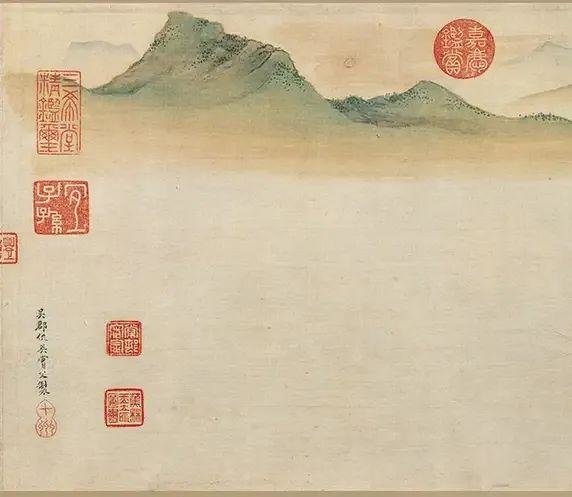 嘉慶鑑賞
三希堂精鑑璽
宜子孫
吳郡仇英實父製
十州